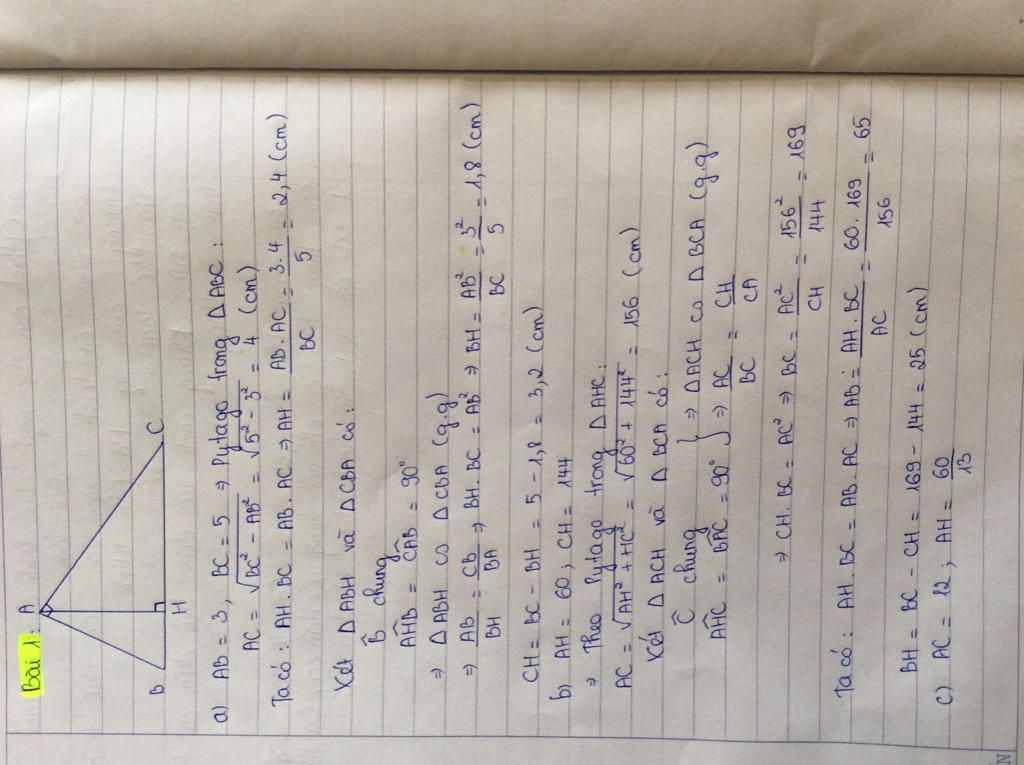 Bài 1:
A
B H C
a) AB = 3, BC = 5 ⇒ Pytago trong ΔABC:
AC = √(BC² - AB²) = √(5² - 3²) = 4 (cm)
Ta có: AH. BC = AB. AC ⇒ AH = AB. AC / BC = 3.4 / 5 = 2,4 (cm)
Xét Δ ABH và Δ CBA có:
B̂ chung
AHB = CAB = 90°
⇒ Δ ABH ∽ Δ CBA (g.g)
⇒ AB / BH = CB / BA ⇒ BH. BC = AB² ⇒ BH = AB² / BC = 3² / 5 = 1,8 (cm)
CH = BC - BH = 5 - 1,8 = 3,2 (cm)
b) AH = 60, CH = 144
⇒ Theo Pytago trong Δ AHC:
AC = √(AH² + HC²) = √(60² + 144²) = 156 (cm)
Xét Δ ACH và Δ BCA có:
Ĉ chung
AHC = BAC = 90° } ⇒ Δ ACH ∽ Δ BCA (g.g)
⇒ AC / BC = CH / CA
⇒ CH. BC = AC² ⇒ BC = AC² / CH = 156² / 144 = 169
Ta có: AH. BC = AB. AC ⇒ AB = AH. BC / AC = 60. 169 / 156 = 65
BH = BC - CH = 169 - 144 = 25 (cm)
c) AC = 12; AH = 60 / 13